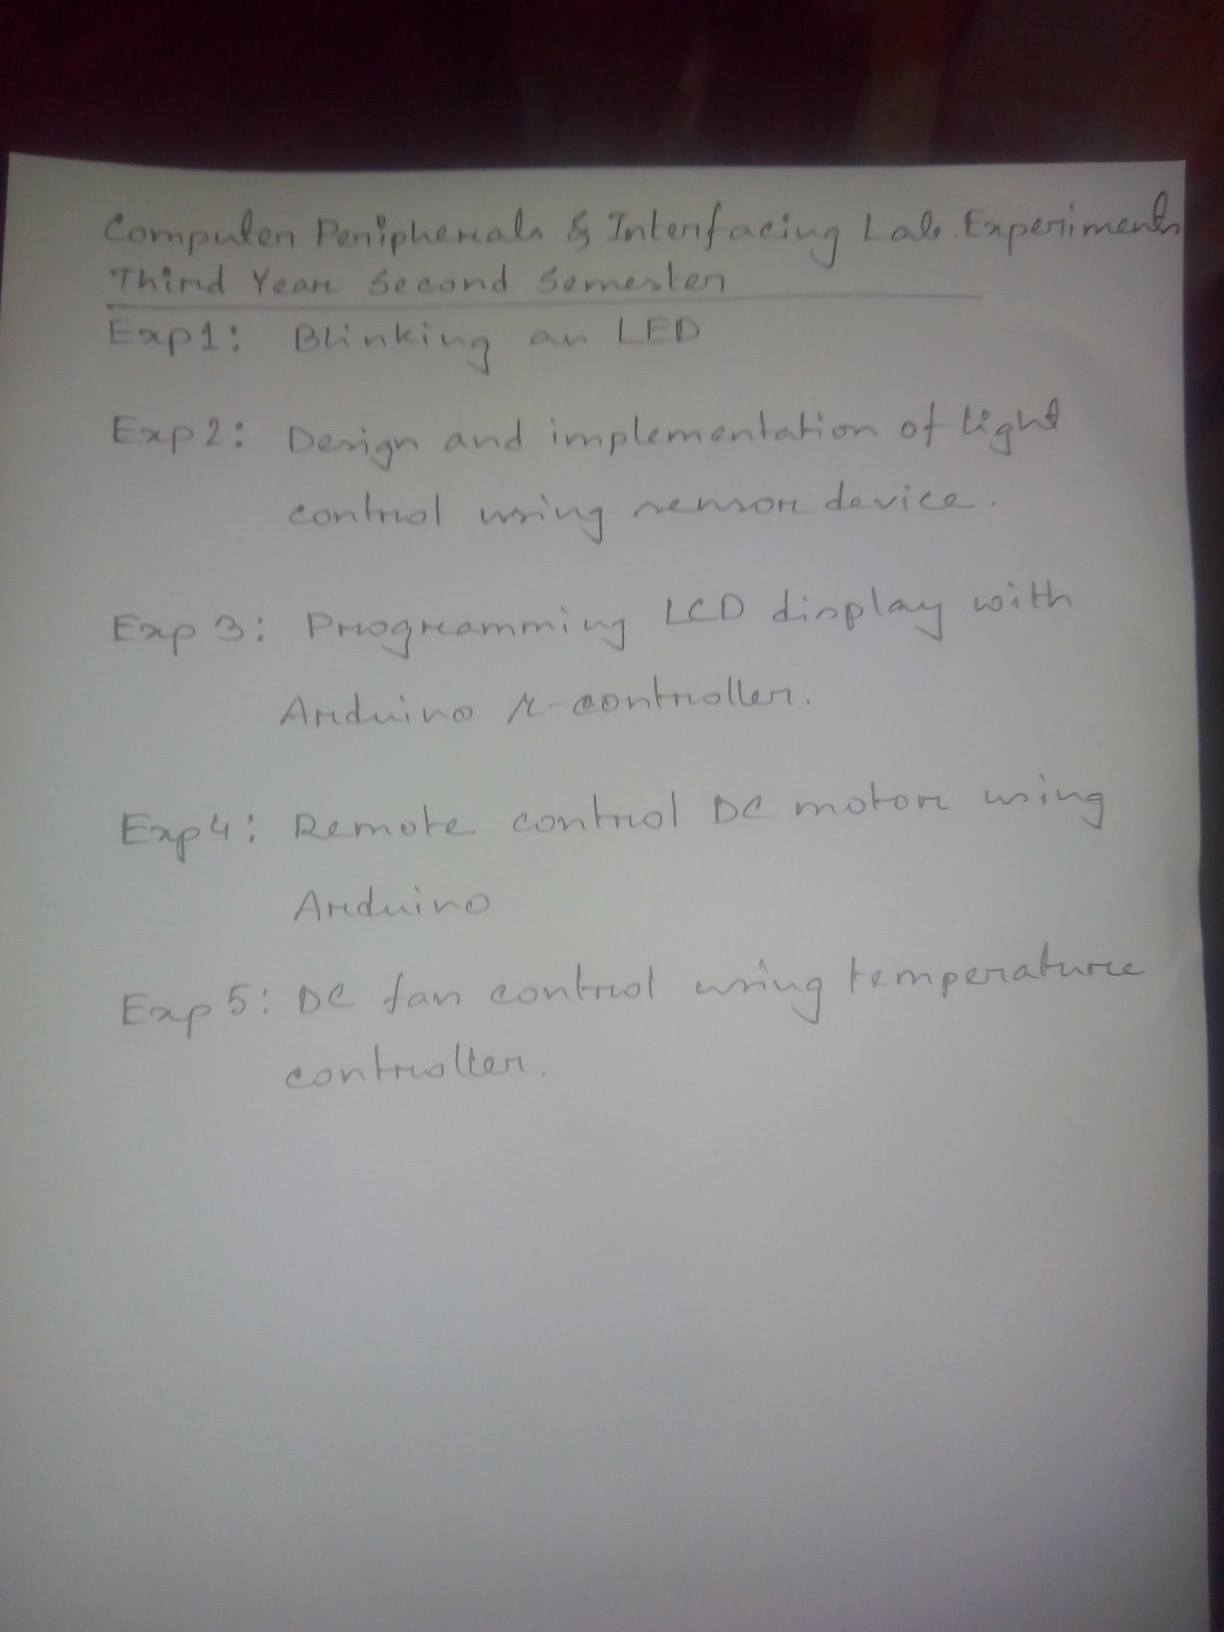 Computer Peripherals & Interfacing Lab. Experiments
Third Year Second Semester
Exp1: Blinking an LED
Exp2: Design and implementation of light
control using sensor device.
Exp 3: Programming LCD display with
Arduino μ-controller.
Exp4: Remote control DC motor using
Arduino
Exp5: DC fan control using temperature
controller.